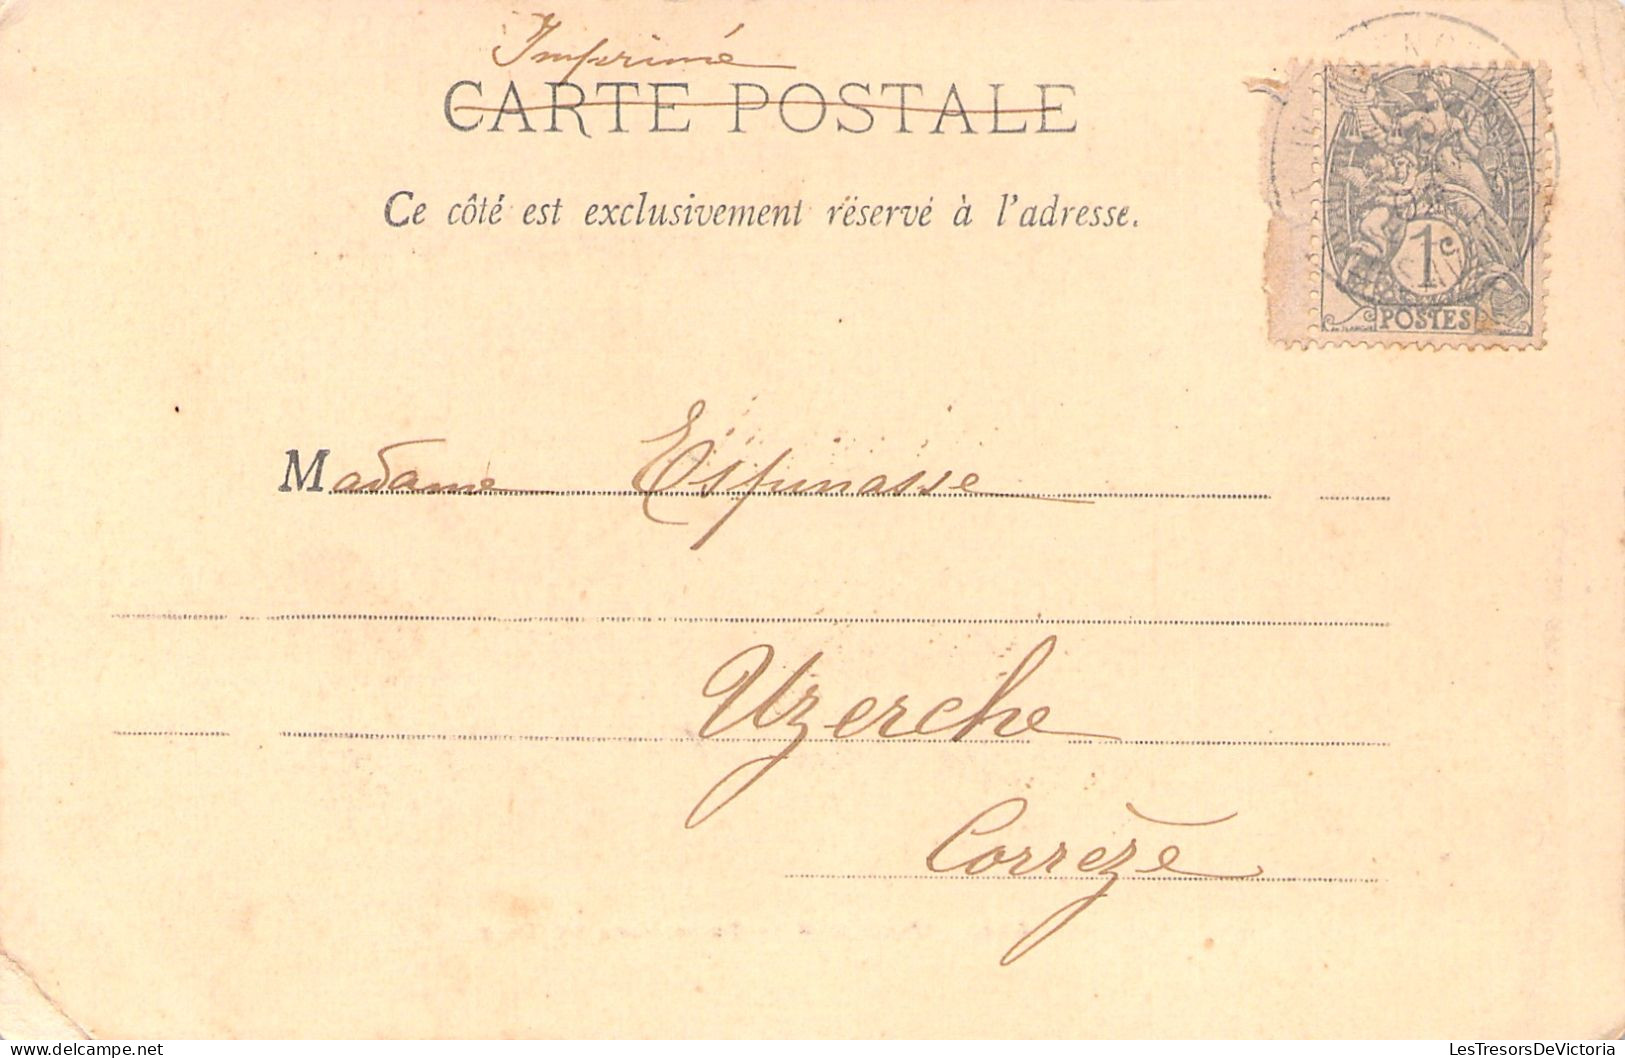 Imprimé
CARTE POSTALE
Ce côté est exclusivement réservé à l'adresse.
1c
POSTES
Madame Espinasse
Uzerche
Corrèze
LesTresorsDeVictoria